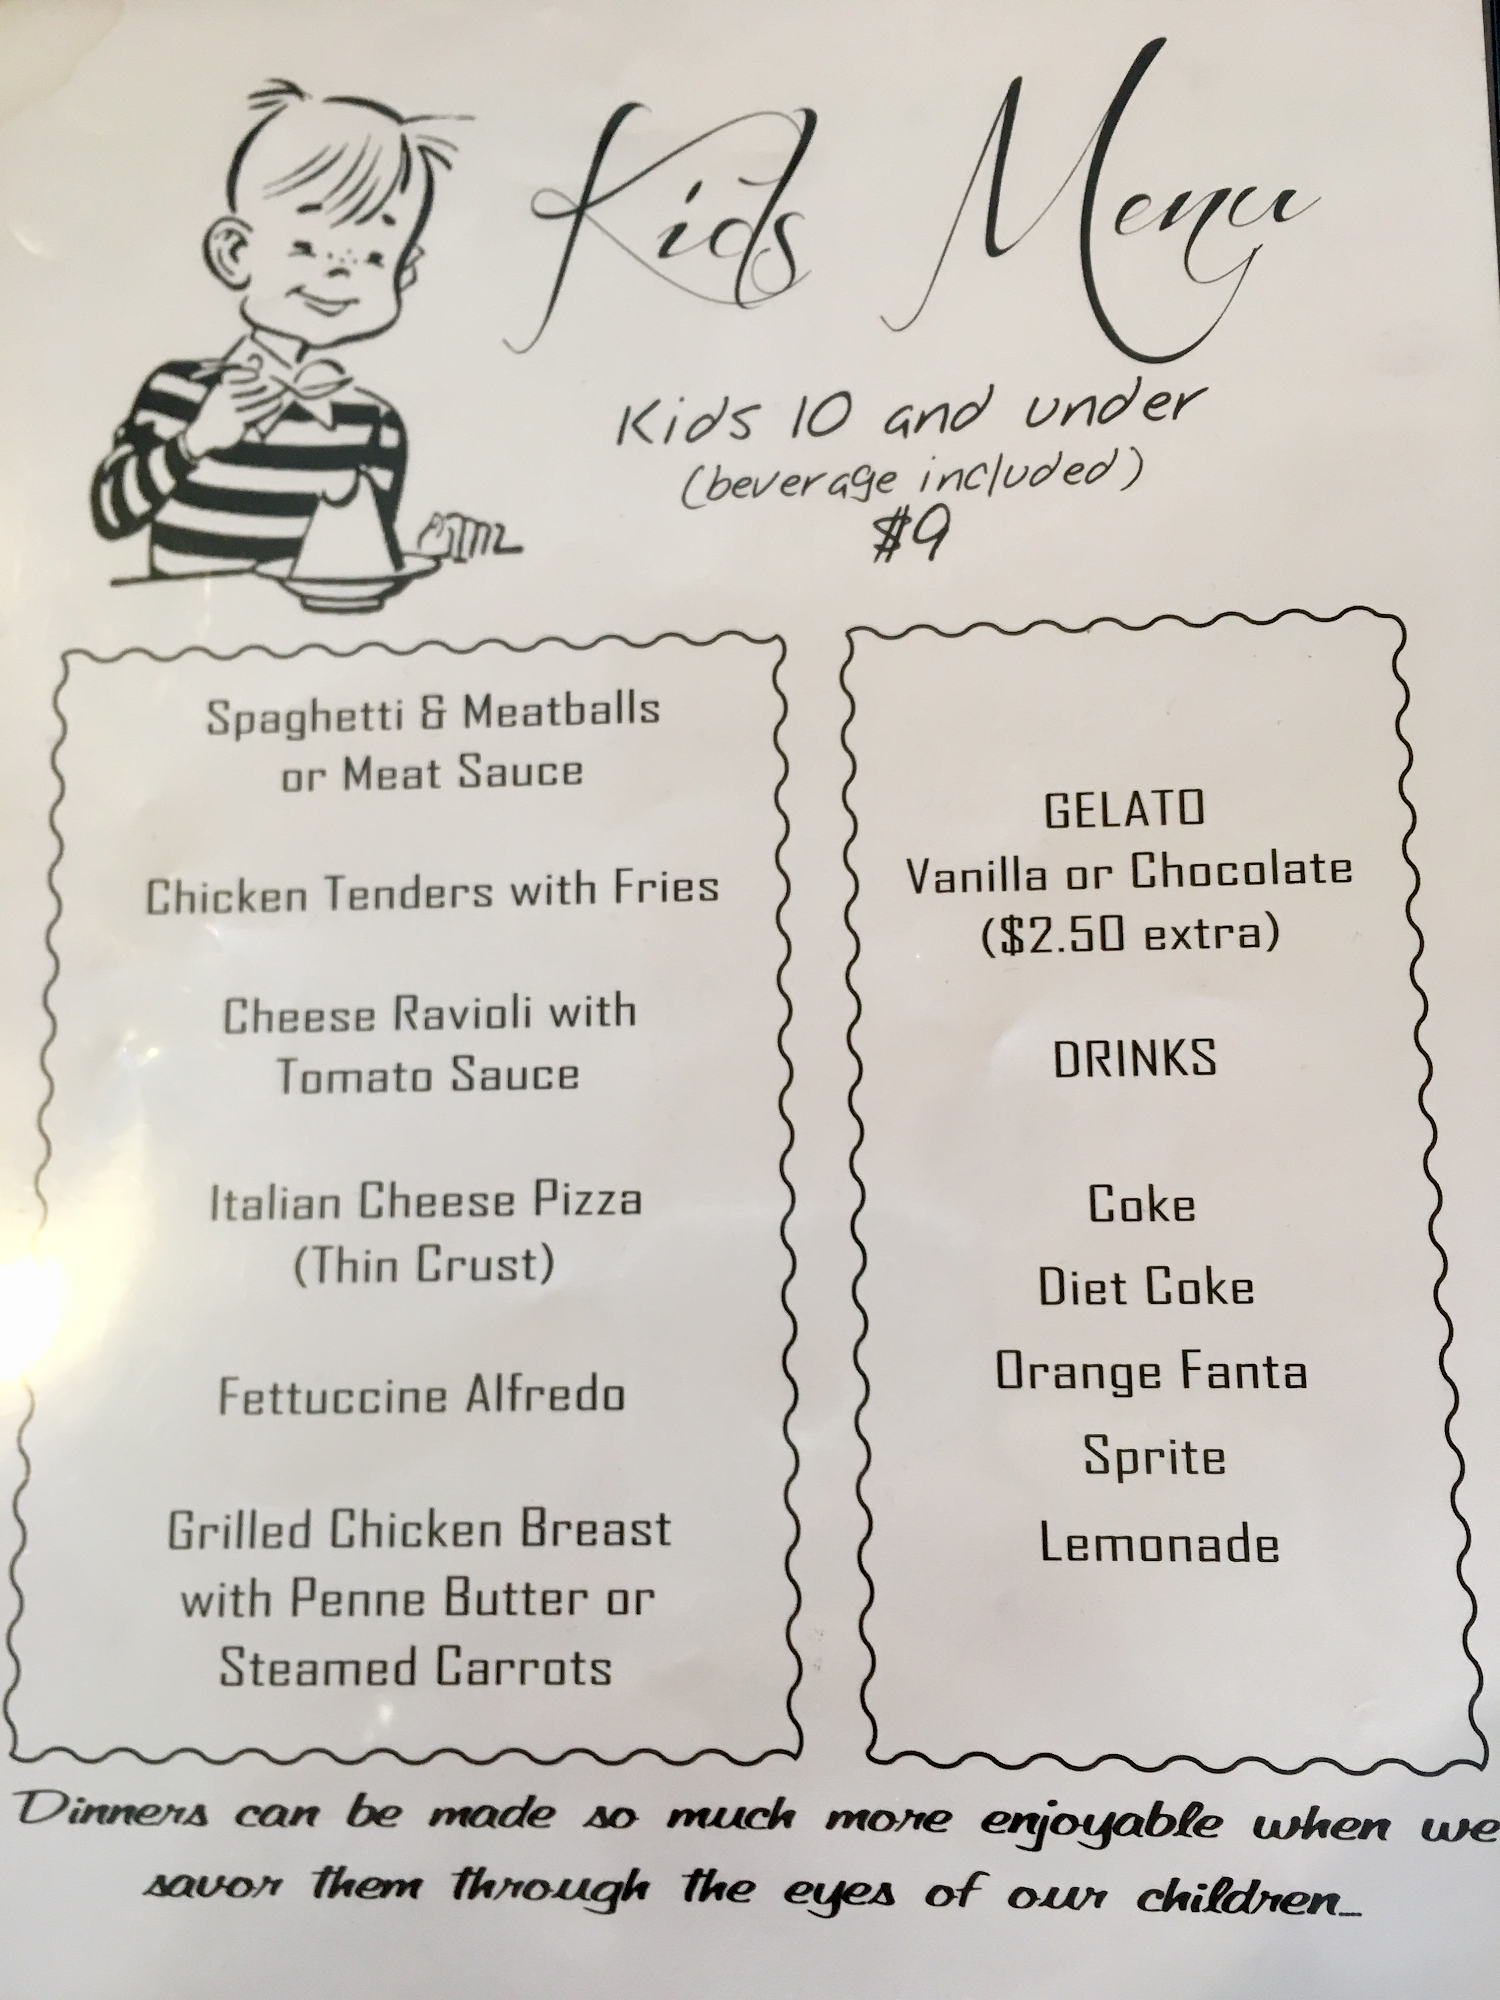 Kids Menu
Kids 10 and under
(beverage included)
$9
Spaghetti & Meatballs
or Meat Sauce
Chicken Tenders with Fries
Cheese Ravioli with
Tomato Sauce
Italian Cheese Pizza
(Thin Crust)
Fettuccine Alfredo
Grilled Chicken Breast
with Penne Butter or
Steamed Carrots
GELATO
Vanilla or Chocolate
($2.50 extra)
DRINKS
Coke
Diet Coke
Orange Fanta
Sprite
Lemonade
Dinners can be made so much more enjoyable when we
savor them through the eyes of our children...